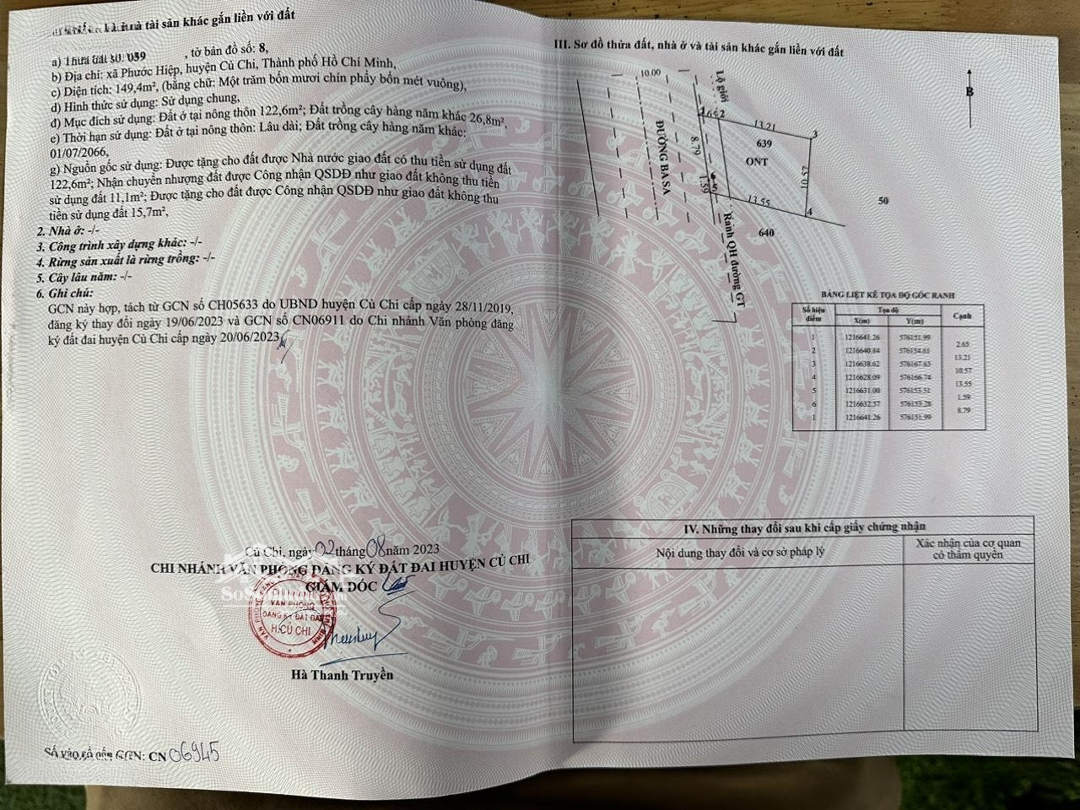 nhà ở và tài sản khác gắn liền với đất
a) Thửa đất số: 639 , tờ bản đồ số: 8,
b) Địa chỉ: xã Phước Hiệp, huyện Củ Chi, Thành phố Hồ Chí Minh,
c) Diện tích: 149,4m², (bằng chữ: Một trăm bốn mươi chín phẩy bốn mét vuông),
d) Hình thức sử dụng: Sử dụng chung,
đ) Mục đích sử dụng: Đất ở tại nông thôn 122,6m²; Đất trồng cây hàng năm khác 26,8m²,
e) Thời hạn sử dụng: Đất ở tại nông thôn: Lâu dài; Đất trồng cây hàng năm khác:
01/07/2066,
g) Nguồn gốc sử dụng: Được tặng cho đất được Nhà nước giao đất có thu tiền sử dụng đất
122,6m²; Nhận chuyển nhượng đất được Công nhận QSDĐ như giao đất không thu tiền
sử dụng đất 11,1m²; Được tặng cho đất được Công nhận QSDĐ như giao đất không thu
tiền sử dụng đất 15,7m²,
2. Nhà ở: -/-
3. Công trình xây dựng khác: -/-
4. Rừng sản xuất là rừng trồng: -/-
5. Cây lâu năm: -/-
6. Ghi chú:
GCN này hợp, tách từ GCN số CH05633 do UBND huyện Củ Chi cấp ngày 28/11/2019,
đăng ký thay đổi ngày 19/06/2023 và GCN số CN06911 do Chi nhánh Văn phòng đăng
ký đất đai huyện Củ Chi cấp ngày 20/06/2023
Củ Chi, ngày 02 tháng 08 năm 2023
CHI NHÁNH VĂN PHÒNG ĐĂNG KÝ ĐẤT ĐAI HUYỆN CỦ CHI
GIÁM ĐỐC
CHI NHÁNH
VĂN PHÒNG
ĐĂNG KÝ ĐẤT ĐAI
H.CỦ CHI
Hà Thanh Truyền
Số vào sổ cấp GCN: CN 06945
III. Sơ đồ thửa đất, nhà ở và tài sản khác gắn liền với đất
B
10.00
Lộ giới
1
2
13.21
3
639
ONT
8.79
ĐƯỜNG BA SA
10.57
1.59
13.55
4
50
640
Ranh QH đường GT
BẢNG LIỆT KÊ TỌA ĐỘ GÓC RANH
Số hiệu điểm Tọa độ Cạnh
X(m) Y(m)
1 1216641.26 576151.99
2.65
2 1216640.84 576154.61
13.21
3 1216638.62 576167.63
10.57
4 1216628.09 576166.74
13.55
5 1216631.00 576153.51
1.59
6 1216632.57 576153.28
8.79
1 1216641.26 576151.99
IV. Những thay đổi sau khi cấp giấy chứng nhận
Nội dung thay đổi và cơ sở pháp lý
Xác nhận của cơ quan
có thẩm quyền